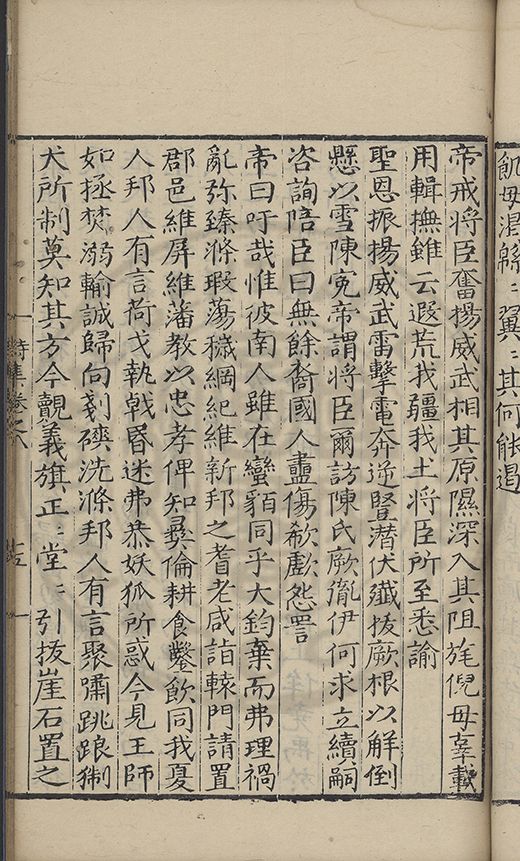 飢毋渴緜〻翼〻其何能遏
帝戒將臣奮揚威武相其原隰深入其阻旄倪毋辜載
用輯撫雖云遐荒我疆我土將臣所至悉諭
聖恩振揚威武雷擊電奔逆豎潛伏殲拔厥根以解倒
懸以雪陳寃帝謂將臣爾訪陳氏厥胤伊何求立續嗣
咨詢陪臣曰無餘裔國人盡傷欷歔怨詈
帝曰吁哉惟彼南人雖在蠻貊同乎大鈞棄而弗理禍
亂弥臻滌瑕蕩穢綱紀維新邦之耆老咸詣轅門請置
郡邑維屏維藩教以忠孝俾知彞倫耕食鑿飲同我夏
人邦人有言荷戈執戟昏迷弗恭妖狐所惑今見王師
如拯焚溺輸誠歸向剗磢洗滌邦人有言聚嘯跳踉猘
犬所制莫知其方今覩義旗正〻堂〻引拔崖石置之
詩集卷之